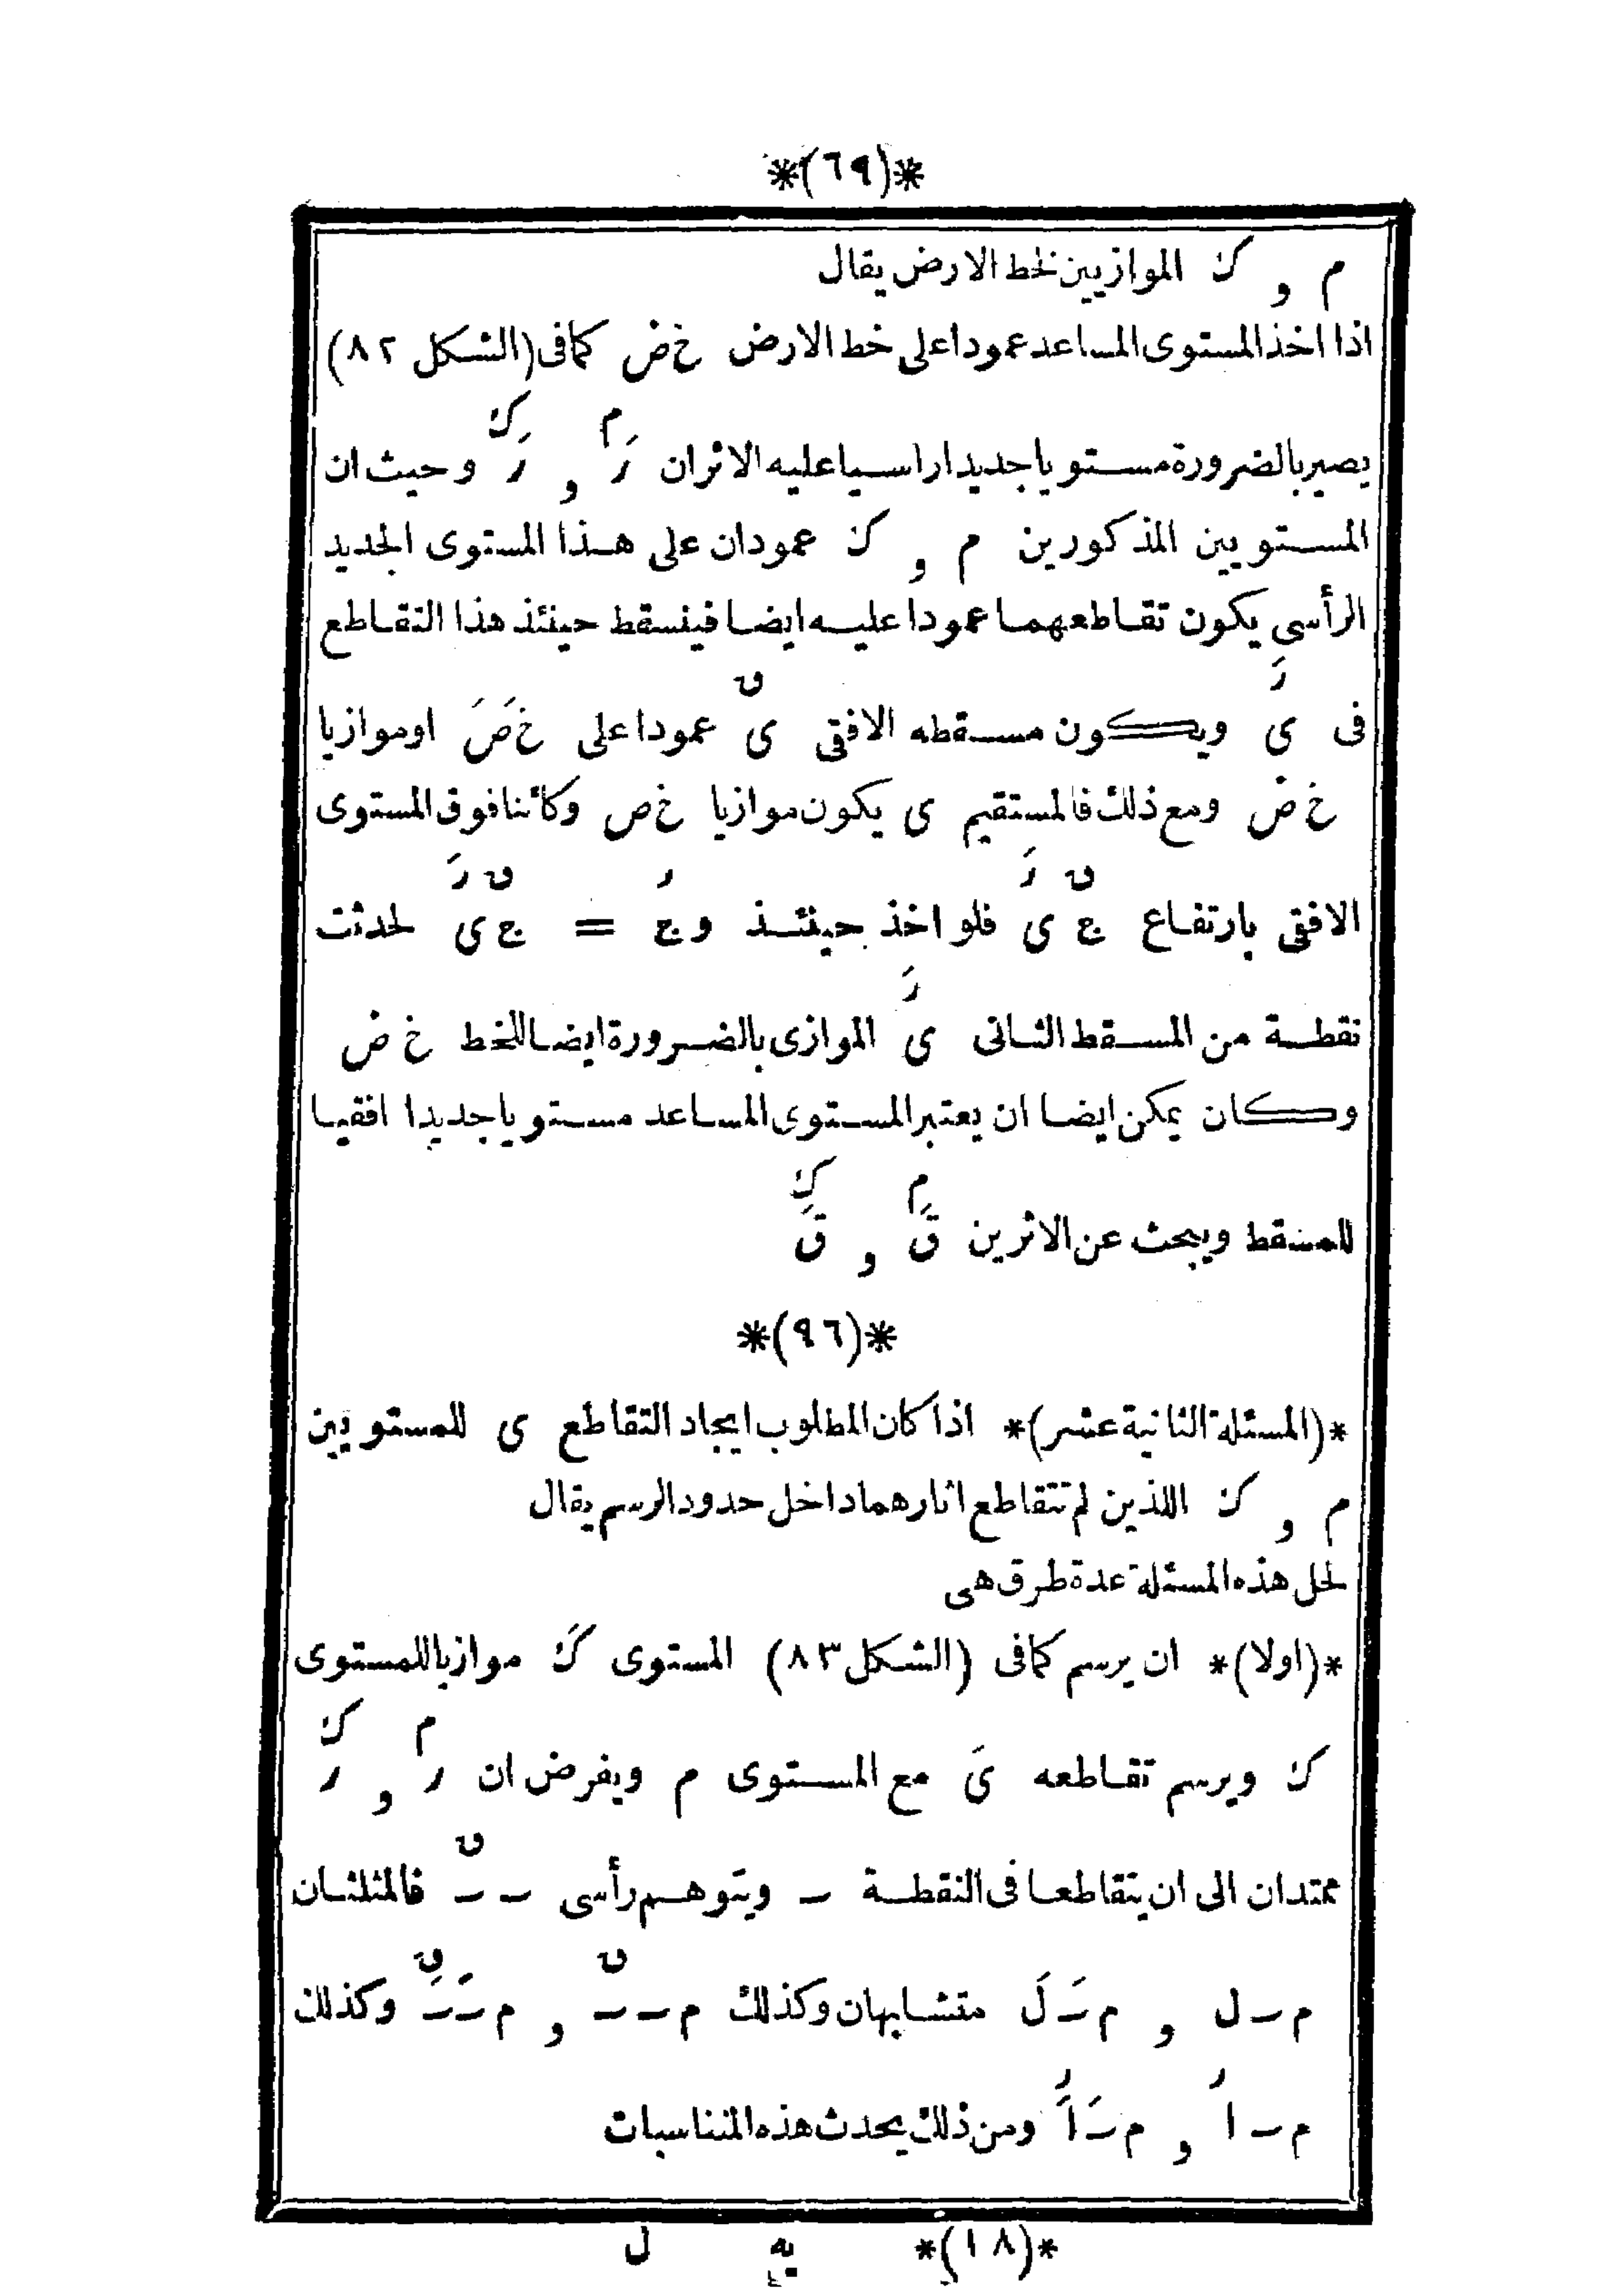 *(٦٩)*
م و ك الموازيين لخط الارض يقال
اذا اخذ المستوى المساعد عمودا على خط الارض خ ض كما فى (الشكل ٨٢)
م ك
يصير بالضرورة مستويا جديدا راسيا عليه الاثران رَ و رَ وحيث ان
المستويين المذكورين م و ك عمودان على هذا المستوى الجديد
الرأسى يكون تقاطعهما عمودا عليه ايضا فيسقط حينئذ هذا التقاطع
رَ ں
فى ى ويكون مسقطه الافقى ى عمودا على خَ صَ او موازيا
خ ض ومع ذلك فالمستقيم ى يكون موازيا خ ص وكائنا فوق المستوى
ں رَ ر ں رَ
الافقى بارتفاع ج ى فلو اخذ حينئذ وج = ج ى لحدثت
رَ
نقطة من المسقط الثانى ى الموازى بالضرورة ايضا للخط خ ض
وكان يمكن ايضا ان يعتبر المستوى المساعد مستويا جديدا افقيا
م ك
للمسقط ويبحث عن الاثرين قَ و قَ
*(٩٦)*
*(المسئلة الثانية عشر)* اذا كان المطلوب ايجاد التقاطع ى للمستويين
م و ك اللذين لم تتقاطع اثارهما داخل حدود الرسم يقال
لحل هذه المسئلة عدة طرق هى
*(اولا)* ان يرسم كما فى (الشكل ٨٣) المستوى كَ موازيا للمستوى
م ك
ك ويرسم تقاطعه ىَ مع المستوى م ويفرض ان ر و ر
ں
ممتدان الى ان يتقاطعا فى النقطة ـ ويتوهم رأسى ـ ـ فالمثلثان
ں ں
م ـ ل و م ـَ لَ متشابهان وكذلك م ـ ـ و م ـَ ـَ وكذلك
ر ر
م ـ ا و م ـَ اَ ومن ذلك يحدث هذه المتناسبات
*(١٨)* يه ل